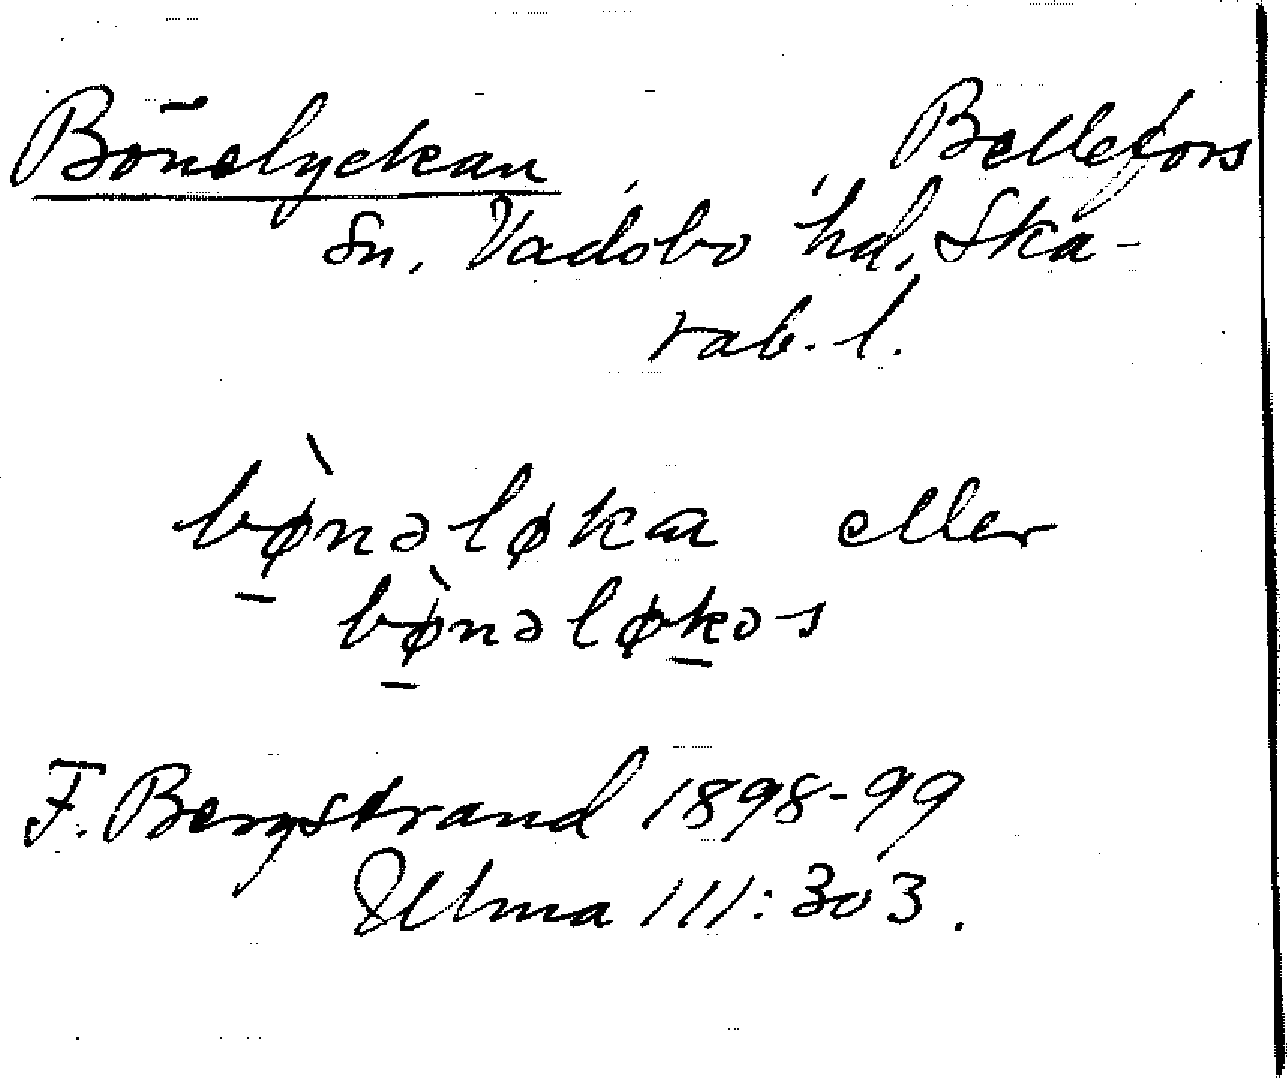 Bönelyckan Bellefors
sn. Vadsbo hd. Ska-
rab. l.
bø̀nəløka eller
bø̀nəløkəs
F. Bergstrand 1898-99
Ulma 111:303.